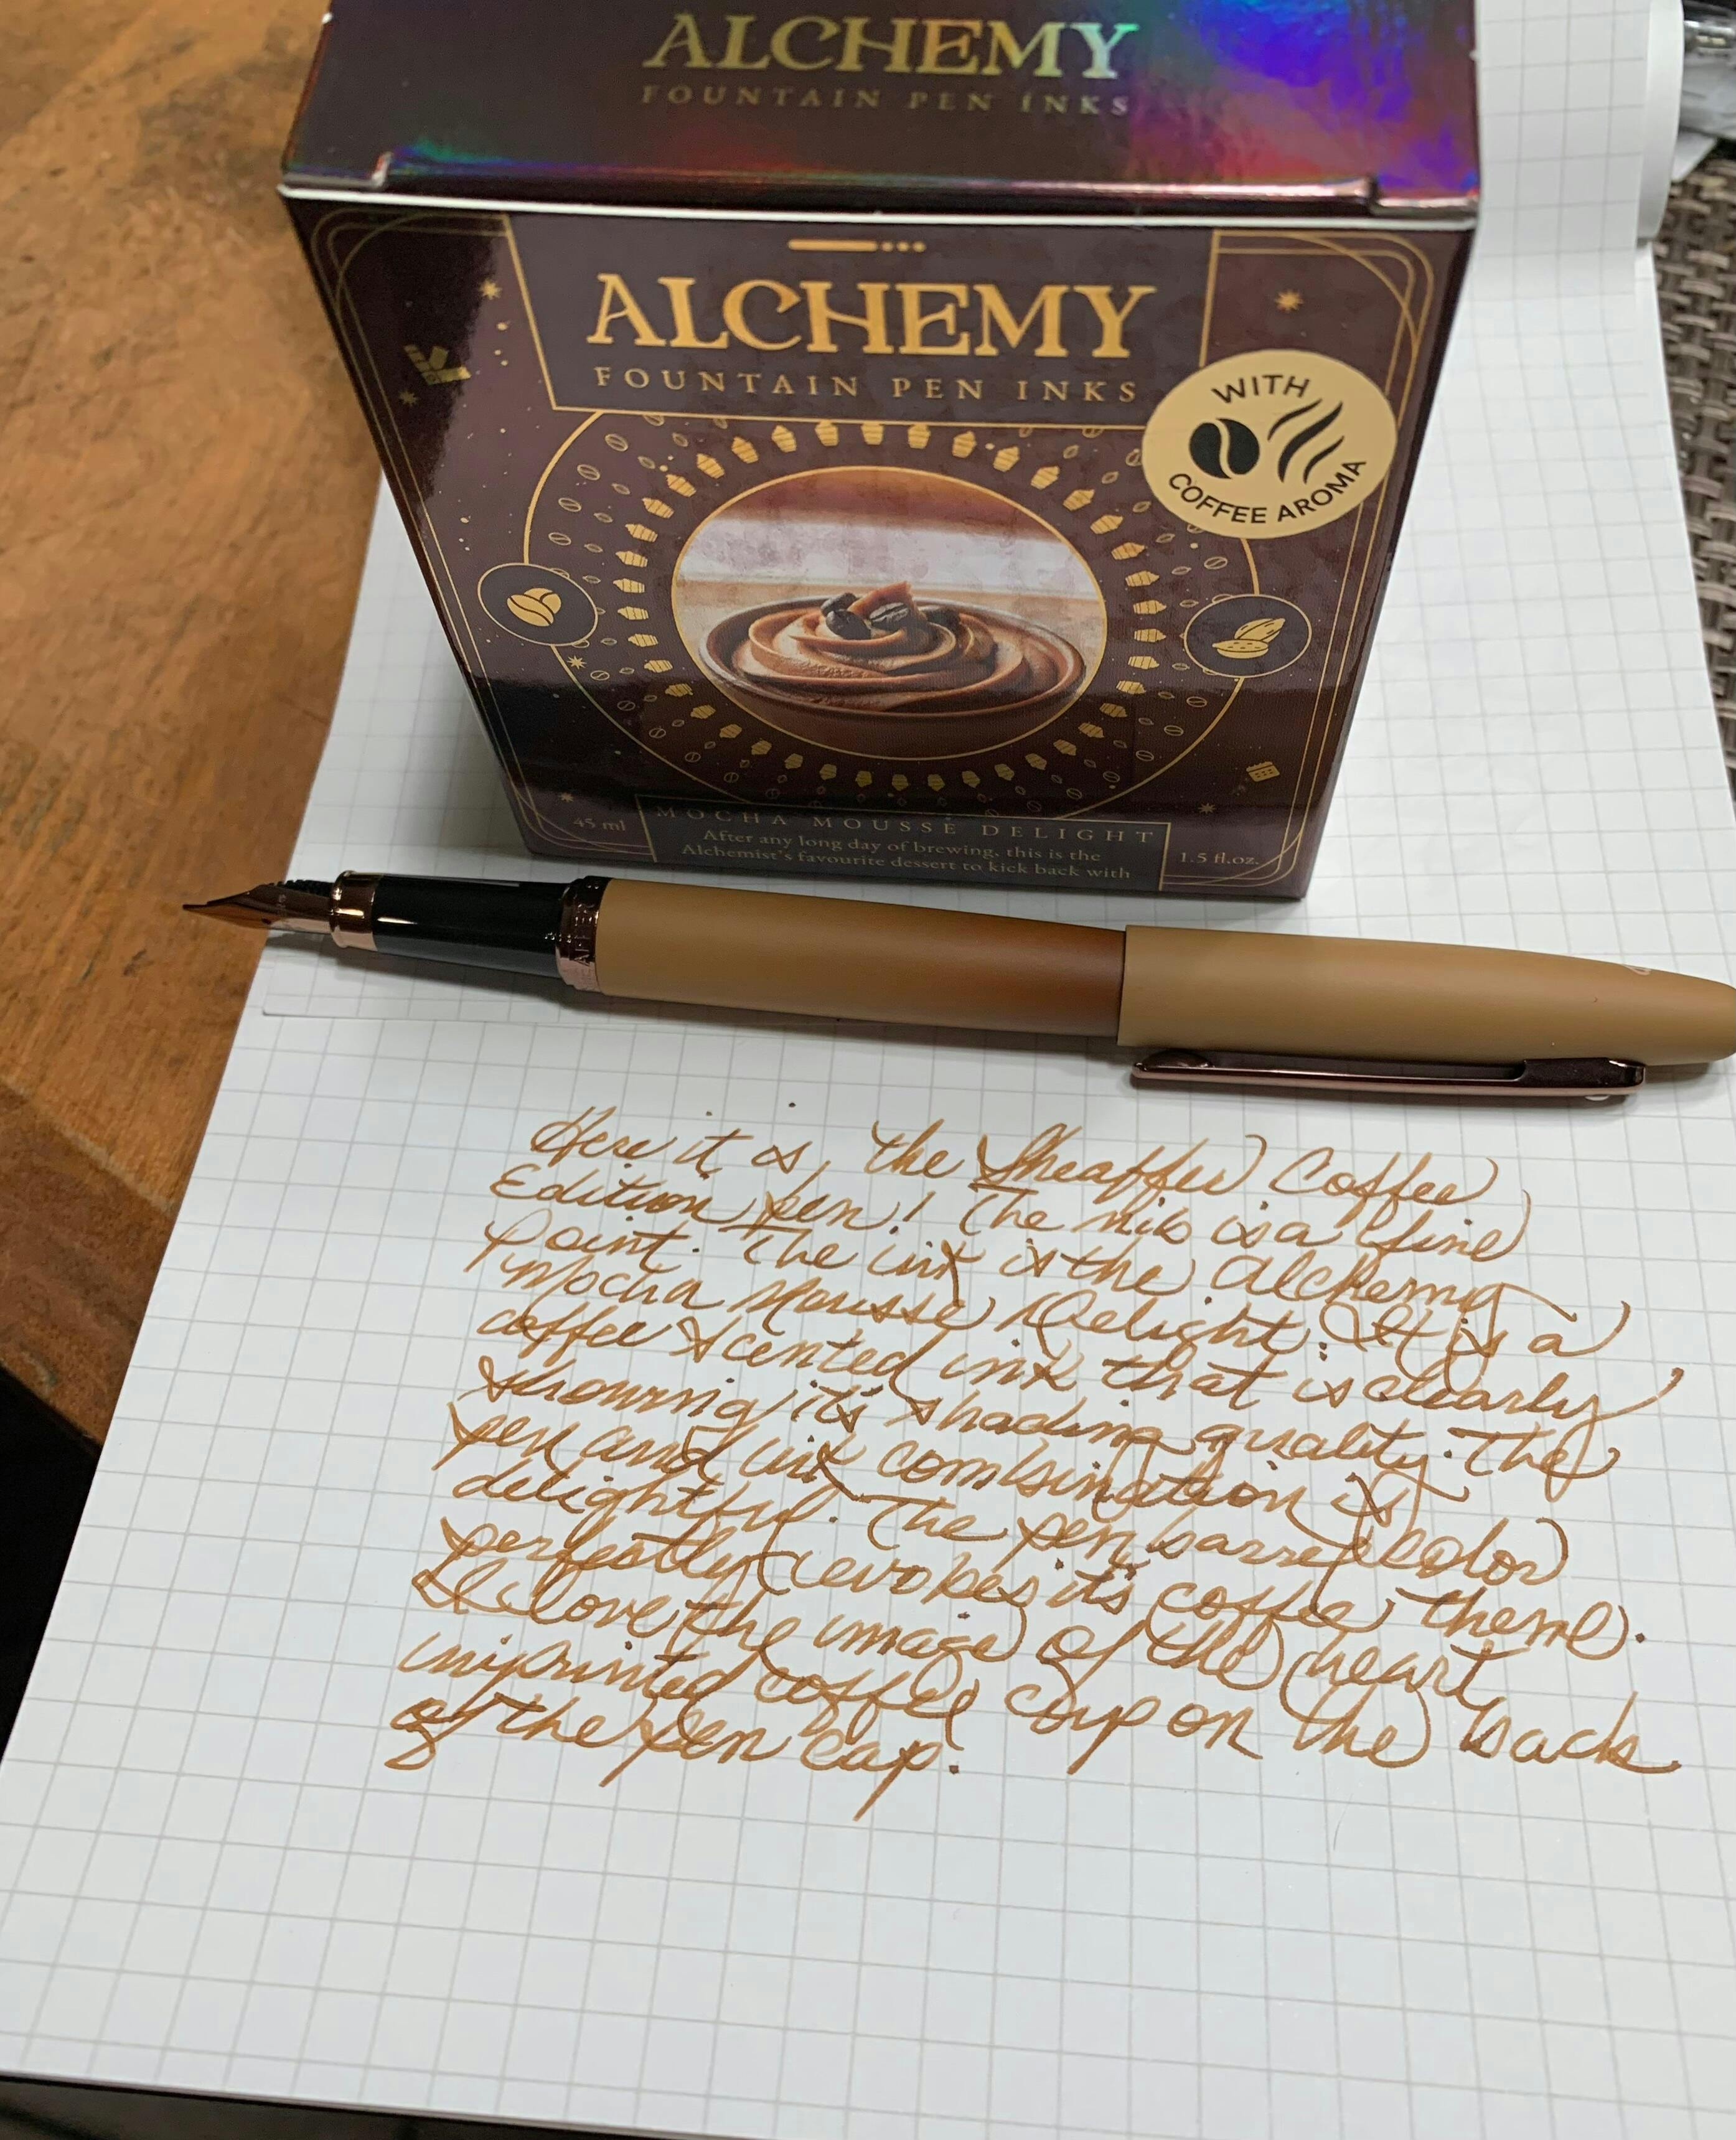 ALCHEMY
FOUNTAIN PEN INKS
ALCHEMY
FOUNTAIN PEN INKS
WITH
COFFEE AROMA
MOCHA MOUSSE DELIGHT
45 ml
After any long day of brewing, this is the
Alchemist's favourite dessert to kick back with
1.5 fl.oz.
Here it is, the Sheaffer Coffee
Edition pen! The nib is a fine
point. The ink is the Alchemy
Mocha Mousse Delight. It is a
coffee scented ink that is clearly
showing its shading quality. The
pen and ink combination is
delightful. The pen barrel color
perfectly evokes it's coffee theme.
I love the image of the heart
imprinted coffee cup on the back
of the pen cap.